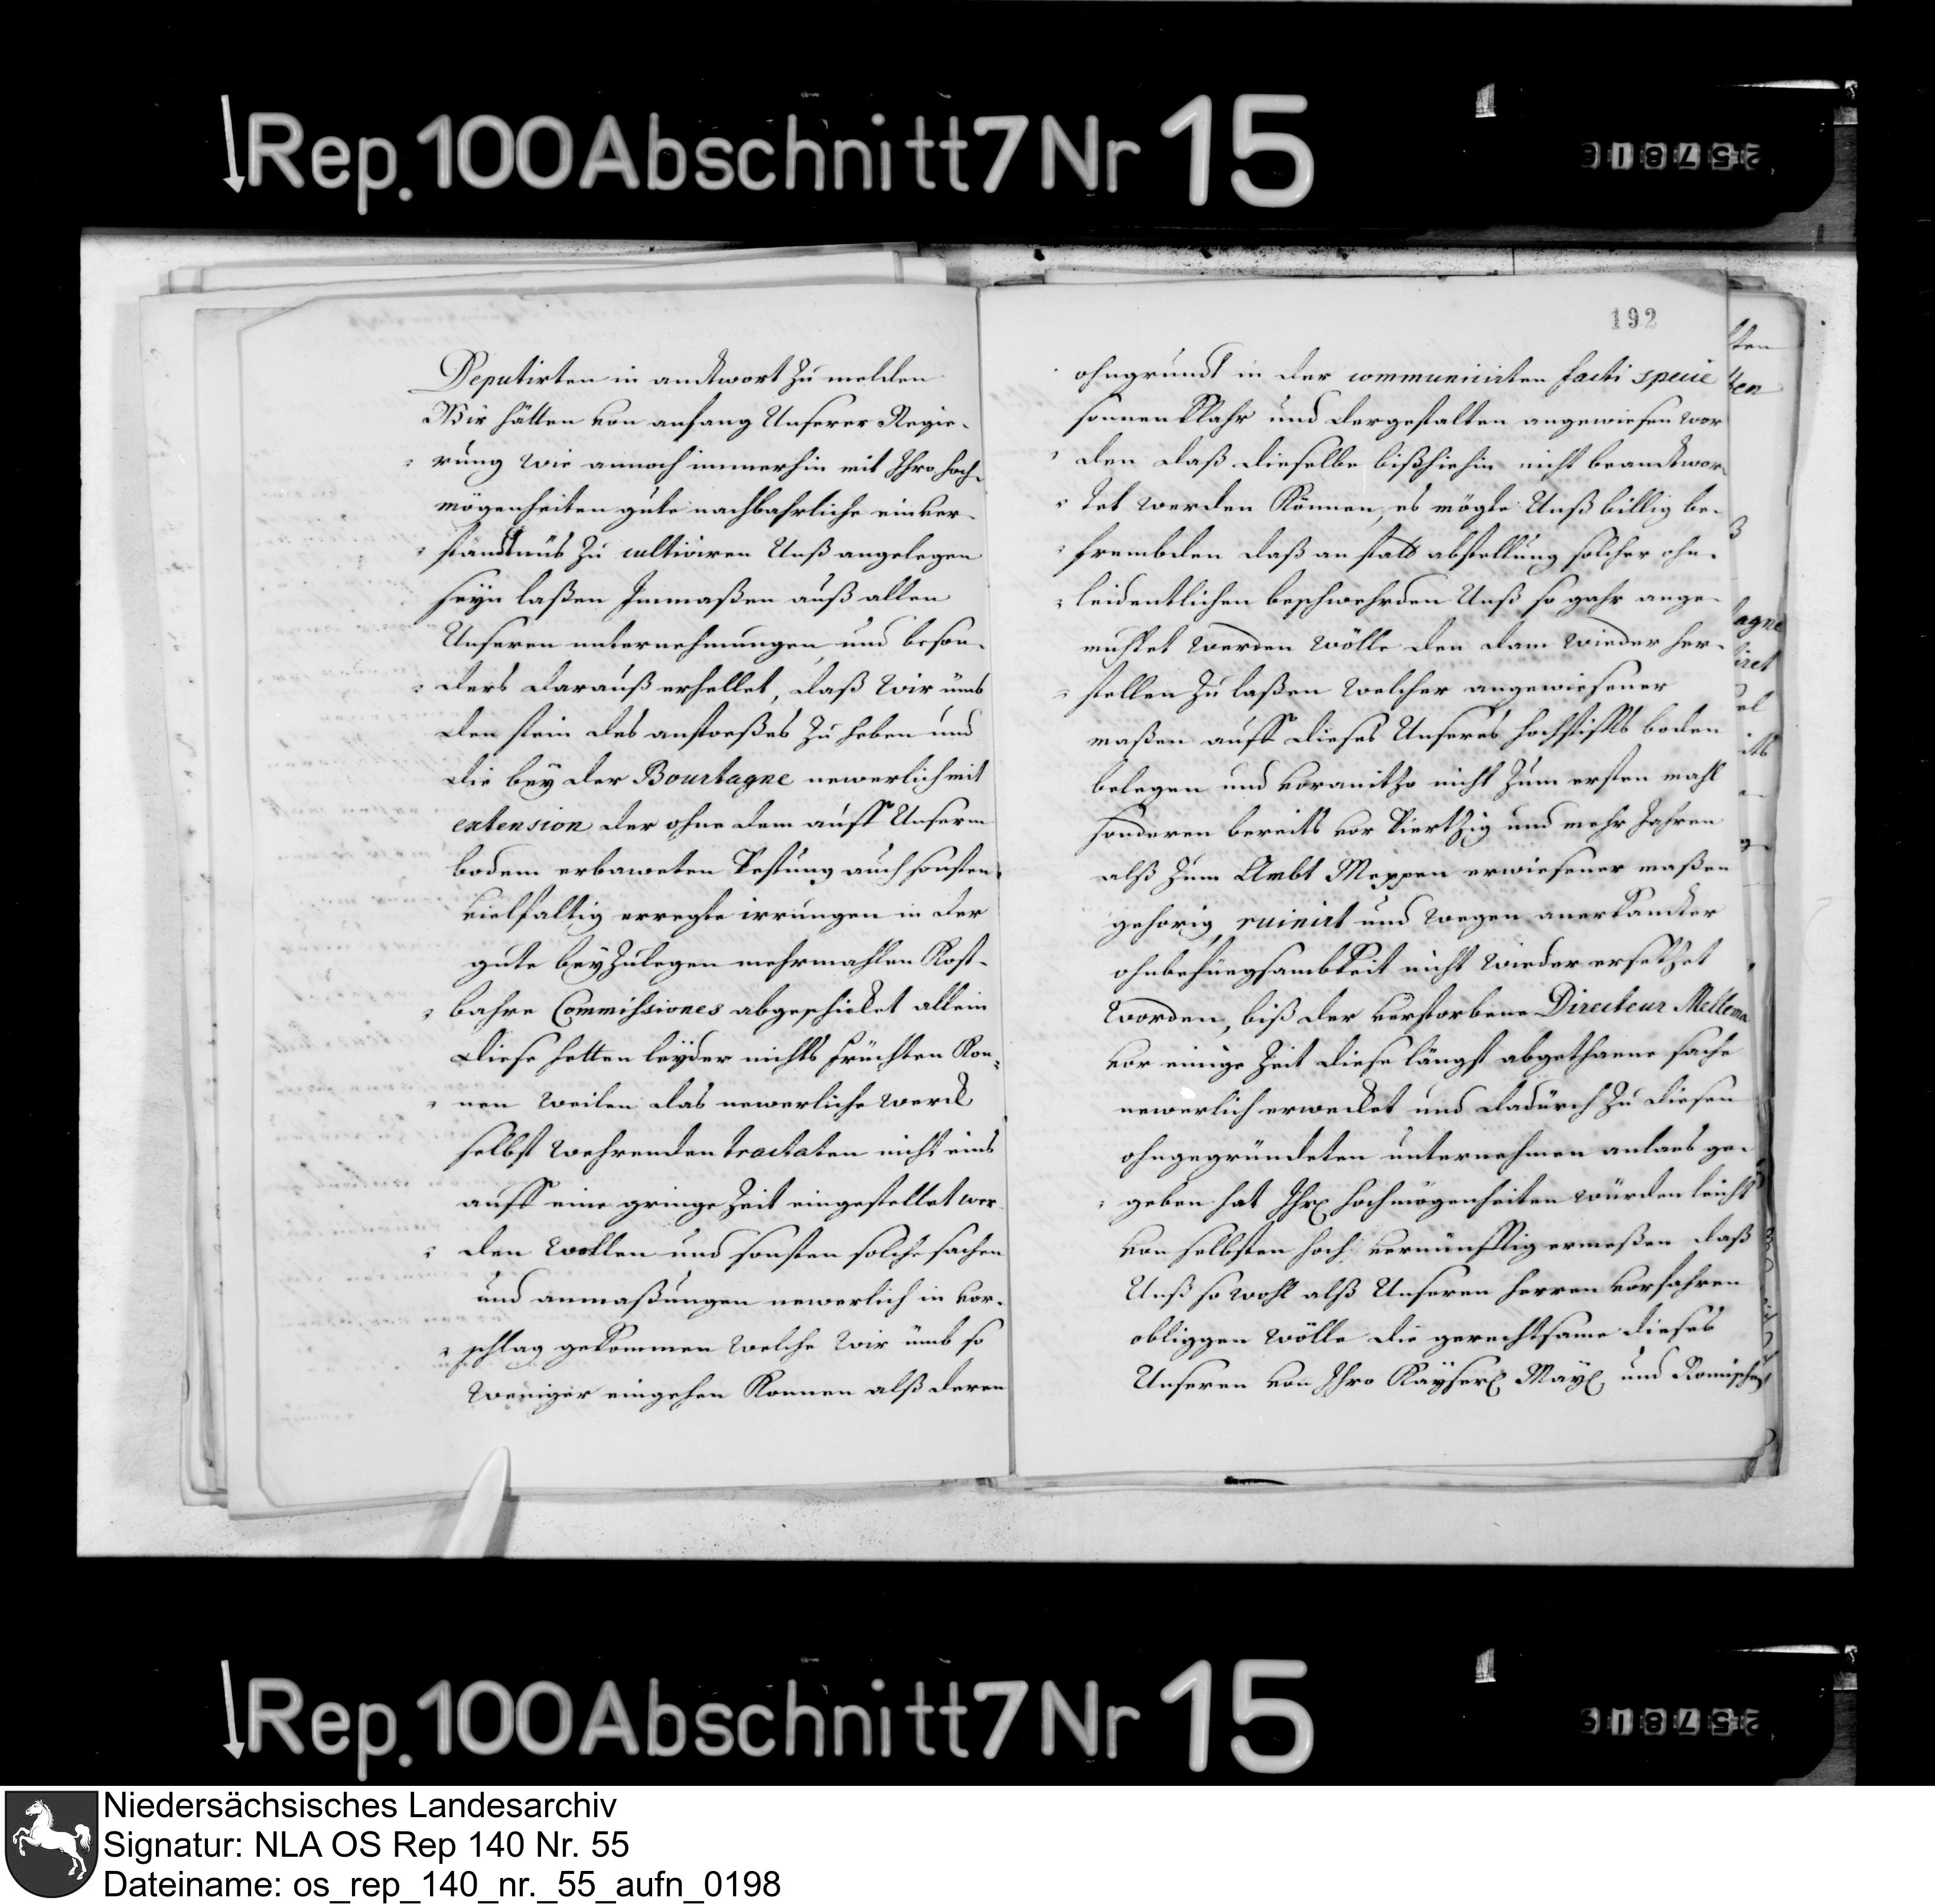 Rep. 100 Abschnitt 7 Nr 15
Deputirten in andtwort zu melden
Wir hätten von anfang Unserer Regie-
rung wie annoch immerhin mit Ihro hoch-
mögenheiten gute nachbahrliche einver-
ständtnüs zu cultiviren Unß angelegen
seyn laßen Inmaßen auß allen
Unseren unternehmungen und beson-
ders darauß erhellet, daß wir ümb
den stein des anstoeßes zu heben und
die bey der Bourtagne newerlich mit
extension der ohne dem auff Unserm
bodem erbaweten Vestung auch sonsten
vielfaltig erregte irrungen in der
gute beyzulegen mehrmahlen Kost-
bahre Commissiones abgeschicket allein
diese hetten leyder nichts früchten Kon-
nen weilen das newerliche werck
selbst wehrenden tractaten nicht eins
auff eine gringe Zeit eingestellet wer
den wollen und sonsten solche sachen
und anmaßungen newerlich in vor-
schlag gekommen welche wir ümb so
weniger eingehen Konnen alß deren
192
ohngrundt in der communicirten facti specie
sonnen Klahr und dergestalten angewiesen wor
den daß dieselbe bißhiehin nicht beandtwor-
tet werden Können, es mögte Unß billig be-
frembden daß an statt abstellung solcher ohn-
leidentlichen beschwehrden Unß so gahr ange-
muhtet werden wölle den dam wieder her-
stellen zu laßen welcher angewiesener
maßen auff dieses Unseres hochstiffts boden
belegen und voranitzo nicht zum ersten mahl
sonderen bereits vor Viertzig und mehr Jahren
alß zum Ambt Meppen erwiesener maßen
gehorig, ruinirt und wegen anerkandter
ohnbefuegsambkeit nicht wieder ersetzet
worden, biß der verstorbene Directeur Mellema
vor einige Zeit diese längst abgethaene sache
newerlich erwecket und dadürch zu diesen
ohngegründeten unternehmen anlaes ge-
geben hat Ihro hochmögenheiten würden leicht
von selbsten hoch vernünfftig ermeßen daß
Unß so wohl alß Unseren herren vorfahren
obliggen wölle die gerechtsame dieses
Unseren von Ihro Kayserl. May. und Romischen
Rep. 100 Abschnitt 7 Nr 15
Niedersächsisches Landesarchiv
Signatur: NLA OS Rep 140 Nr. 55
Dateiname: os_rep_140_nr._55_aufn_0198